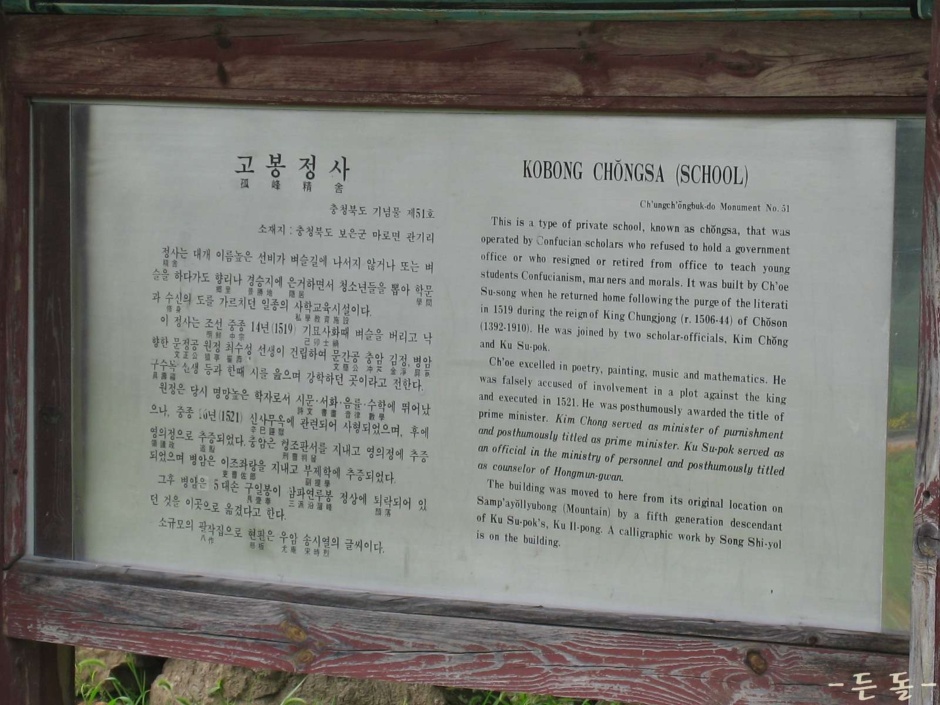 고봉정사
孤峰精舍
충청북도 기념물 제51호
소재지 : 충청북도 보은군 마로면 관기리
정사는 대개 이름높은 선비가 벼슬길에 나서지 않거나 또는 벼
精舍
슬을 하다가도 향리나 경승지에 은거하면서 청소년들을 뽑아 학문
鄕里 隱居 學問
과 수신의 도를 가르치던 일종의 사학교육시설이다.
修身 私學敎育施設
이 정사는 조선 중종 14년(1519) 기묘사화때 벼슬을 버리고 낙
朝鮮 中宗 己卯士禍
향한 문정공 원정 최수성 선생이 건립하여 문간공 충암 김정, 병암
구수복 선생 등과 한때 시를 읊으며 강학하던 곳이라고 전한다.
원정은 당시 명망높은 학자로서 시문·서화·음률·수학에 뛰어났
詩文 書畵 音律 數學
으나, 중종 16년(1521) 신사무옥에 관련되어 사형되었으며, 후에
영의정으로 추증되었다. 충암은 형조판서를 지내고 영의정에 추증
領議政 追贈 刑曹判書
되었으며 병암은 이조좌랑을 지내고 부제학에 추증되었다.
吏曹佐郞 副提學
그후 병암을 5대손 구일봉이 삼파연류봉 정상에 퇴락되어 있
던 것을 이곳으로 옮겼다고 한다.
소규모의 팔작집으로 현판은 우암 송시열의 글씨이다.
八作 懸板 尤庵 宋時烈
KOBONG CHŎNGSA (SCHOOL)
Ch'ungch'ŏngbuk-do Monument No. 51
This is a type of private school, known as chŏngsa, that was
operated by Confucian scholars who refused to hold a government
office or who resigned or retired from office to teach young
students Confucianism, manners and morals. It was built by Ch'oe
Su-song when he returned home following the purge of the literati
in 1519 during the reign of King Chungjong (r. 1506-44) of Chŏson
(1392-1910). He was joined by two scholar-officials, Kim Chŏng
and Ku Su-pok.
Ch'oe excelled in poetry, painting, music and mathematics. He
was falsely accused of involvement in a plot against the king
and executed in 1521. He was posthumously awarded the title of
prime minister. Kim Chong served as minister of purnishment
and posthumously titled as prime minister. Ku Su-pok served as
an official in the ministry of personnel and posthumously titled
as counselor of Hongmun-gwan.
The building was moved to here from its original location on
Samp'ayŏllyubong (Mountain) by a fifth generation descendant
of Ku Su-pok's, Ku Il-pong. A calligraphic work by Song Shi-yol
is on the building.
-든돌-